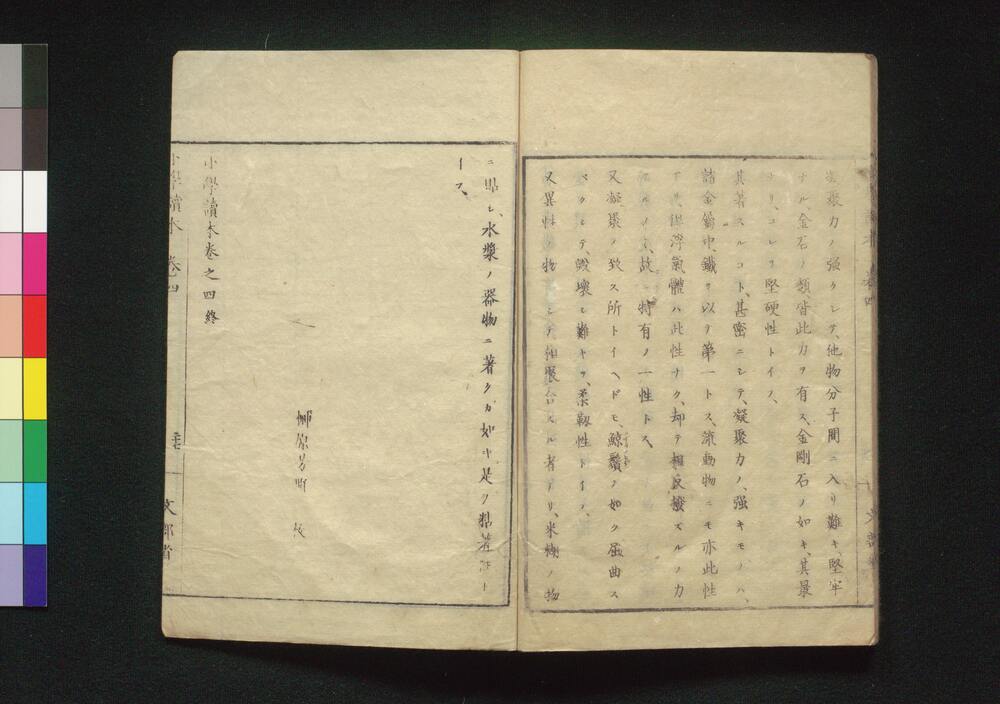 凝聚力ノ強クシテ、他物分子間ニ入リ難キ、堅牢
ナル、金石ノ類皆此力ヲ有ス、金剛石ノ如キ、其最
ナリ、コレヲ堅硬性トイフ、
其著スルコト、甚密ニシテ、凝聚力ノ、強キモノハ、
諸金屬中、鐵ヲ以テ第一トス、流動物ニモ亦此性
アリ、浮氣體ハ此性ナク、却テ相反撥スルノ力
アルノミ、故ニ特有ノ一性トス、
又凝聚ノ致ス所トイヘドモ、鯨鬚ノ如ク屈曲ス
ベクシテ、毀壞シ難キヲ、柔靱性トイフ、
又異性ノ物ニシテ相聚合スル者アリ、米糊ノ物
ニ貼シ、水漿ノ器物ニ著クガ如キ是ヲ粘著性ト
イフ、
榊原芳野 校
小學讀本卷之四終
小學讀本 卷四
文部省